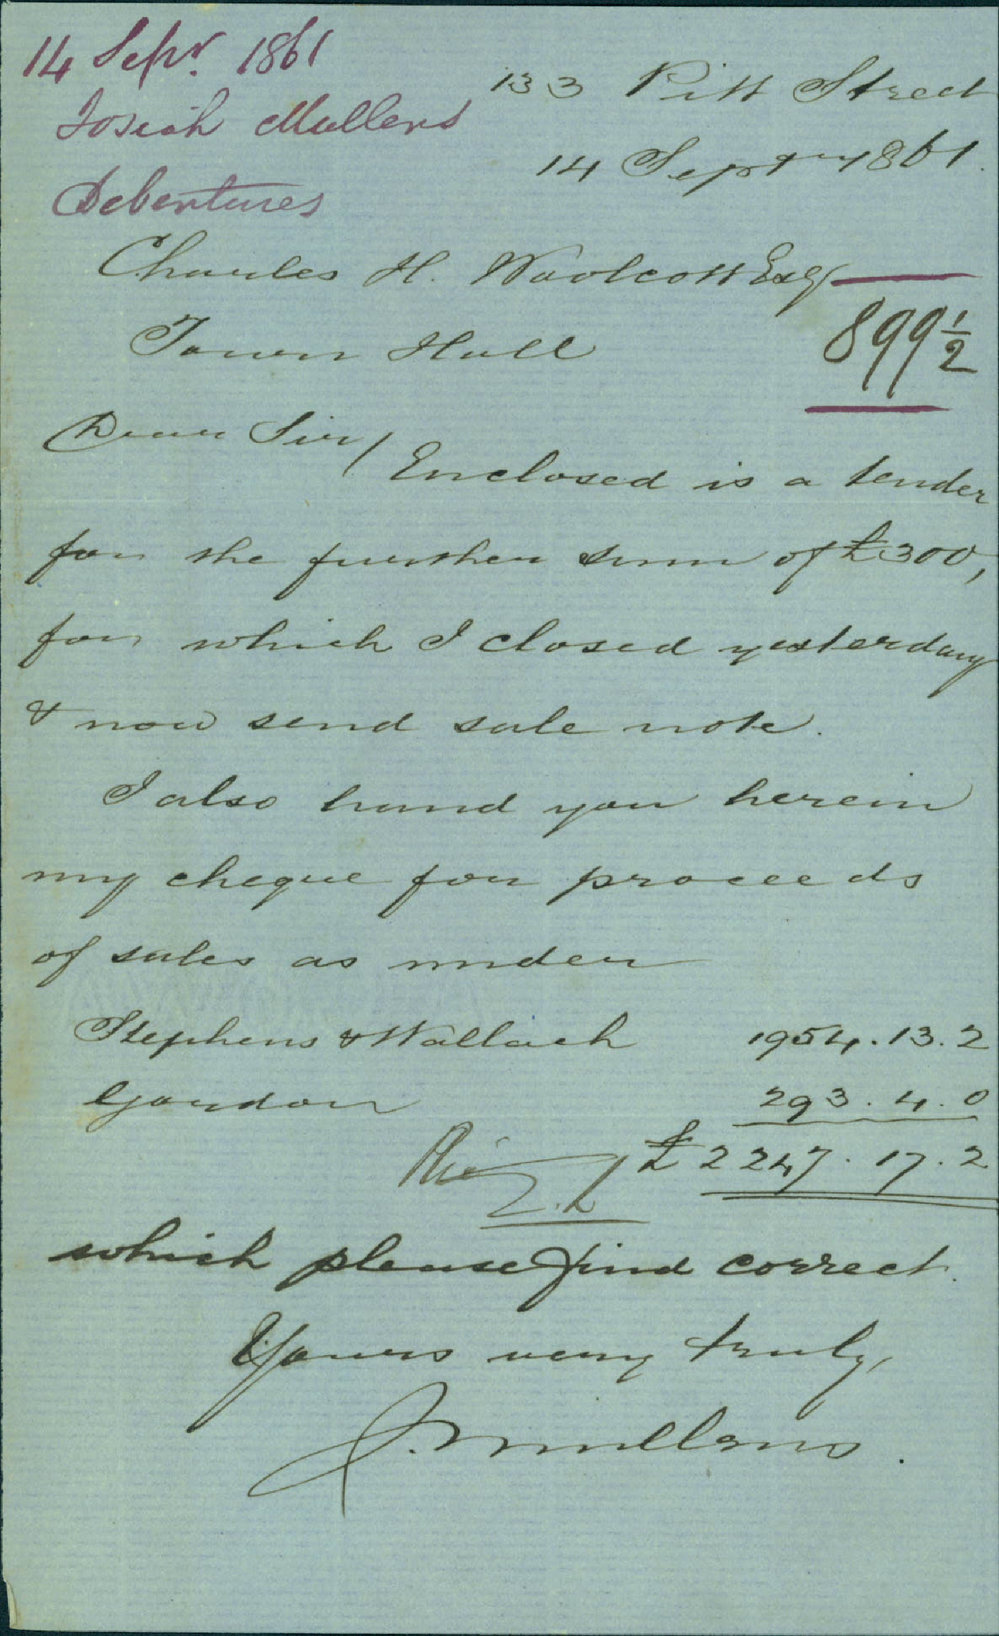 14 Sepr. 1861
Josiah Mullens
Debentures
133 Pitt Street
14 Septr 1861.
Charles H. Woolcott Esqr
Town Hall
899 1/2
Dear Sir/
Enclosed is a tender
for the further sum of £300,
for which I closed yesterday
& now send sale note.
I also hand you herein
my cheque for proceeds
of sales as under
Stephens & Wallach 1954.13.2
Gordon 293.4.0
£2247.17.2
which please find correct.
Yours very truly,
J. Mullens.